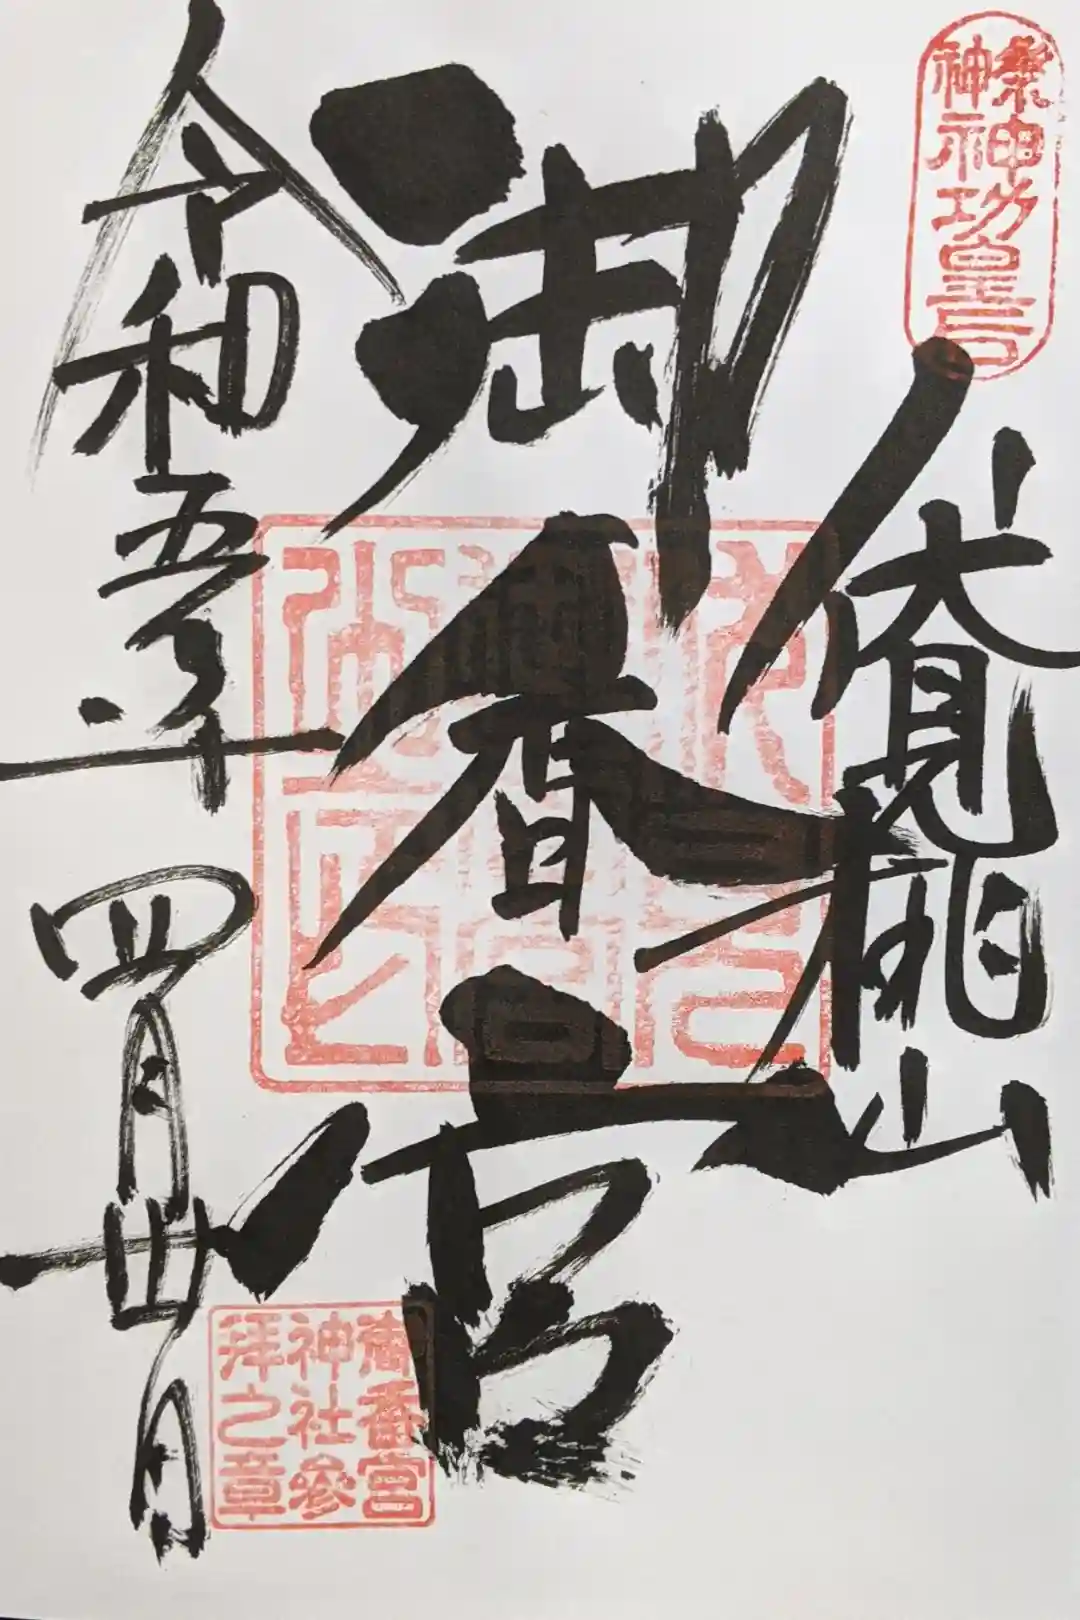 祭神
神功皇后
伏見桃山
御香宮
令和五年
四月廿四日
御香宮
神社參
拜之章